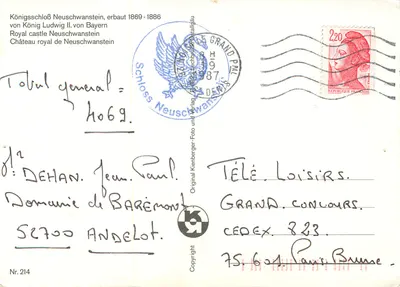 Königsschloß Neuschwanstein, erbaut 1869 - 1886
von König Ludwig II. von Bayern
Royal castle Neuschwanstein
Château royal de Neuschwanstein
Schloss Neuschwanstein
GRAND PAL
1987
2,20
Total general =
4069.
DEHAN. Jean. Paul.
Domaine de BARÉMONT
52700 ANDELOT.
TÉLÉ. LOISIRS.
GRAND. CONCOURS.
CEDEX. 823.
75.601. Paris Brune.
Original Kienberger-Foto und Verlag
Copyright
Nr. 214